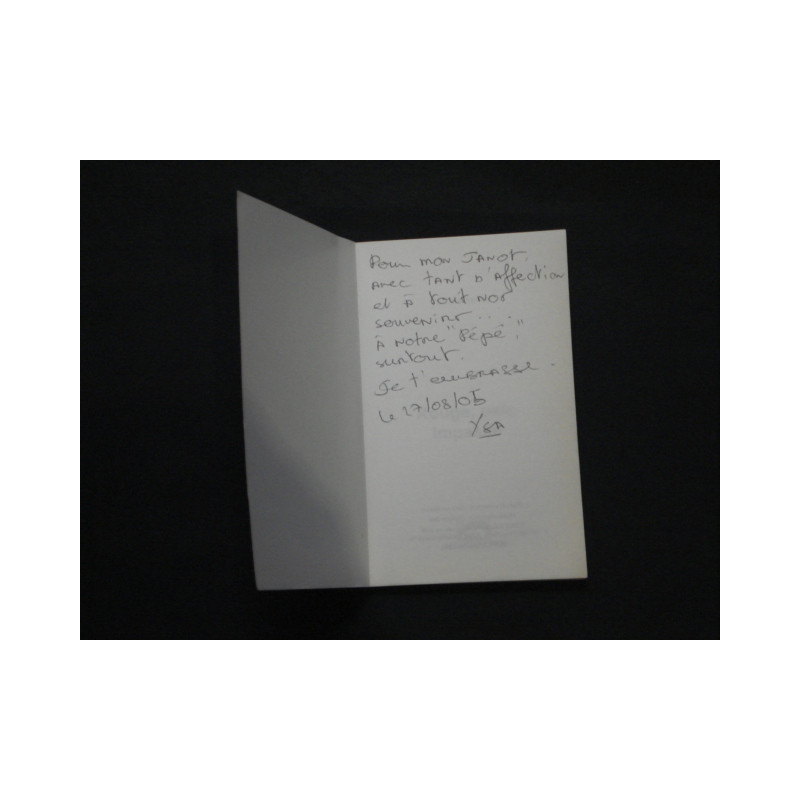 Pour mon JANOT.
AVEC TANT D'Affection
et à tout nos
souvenirs . . .
À notre "Pépé"
surtout.
Je t'embrasse.
Le 27/08/05